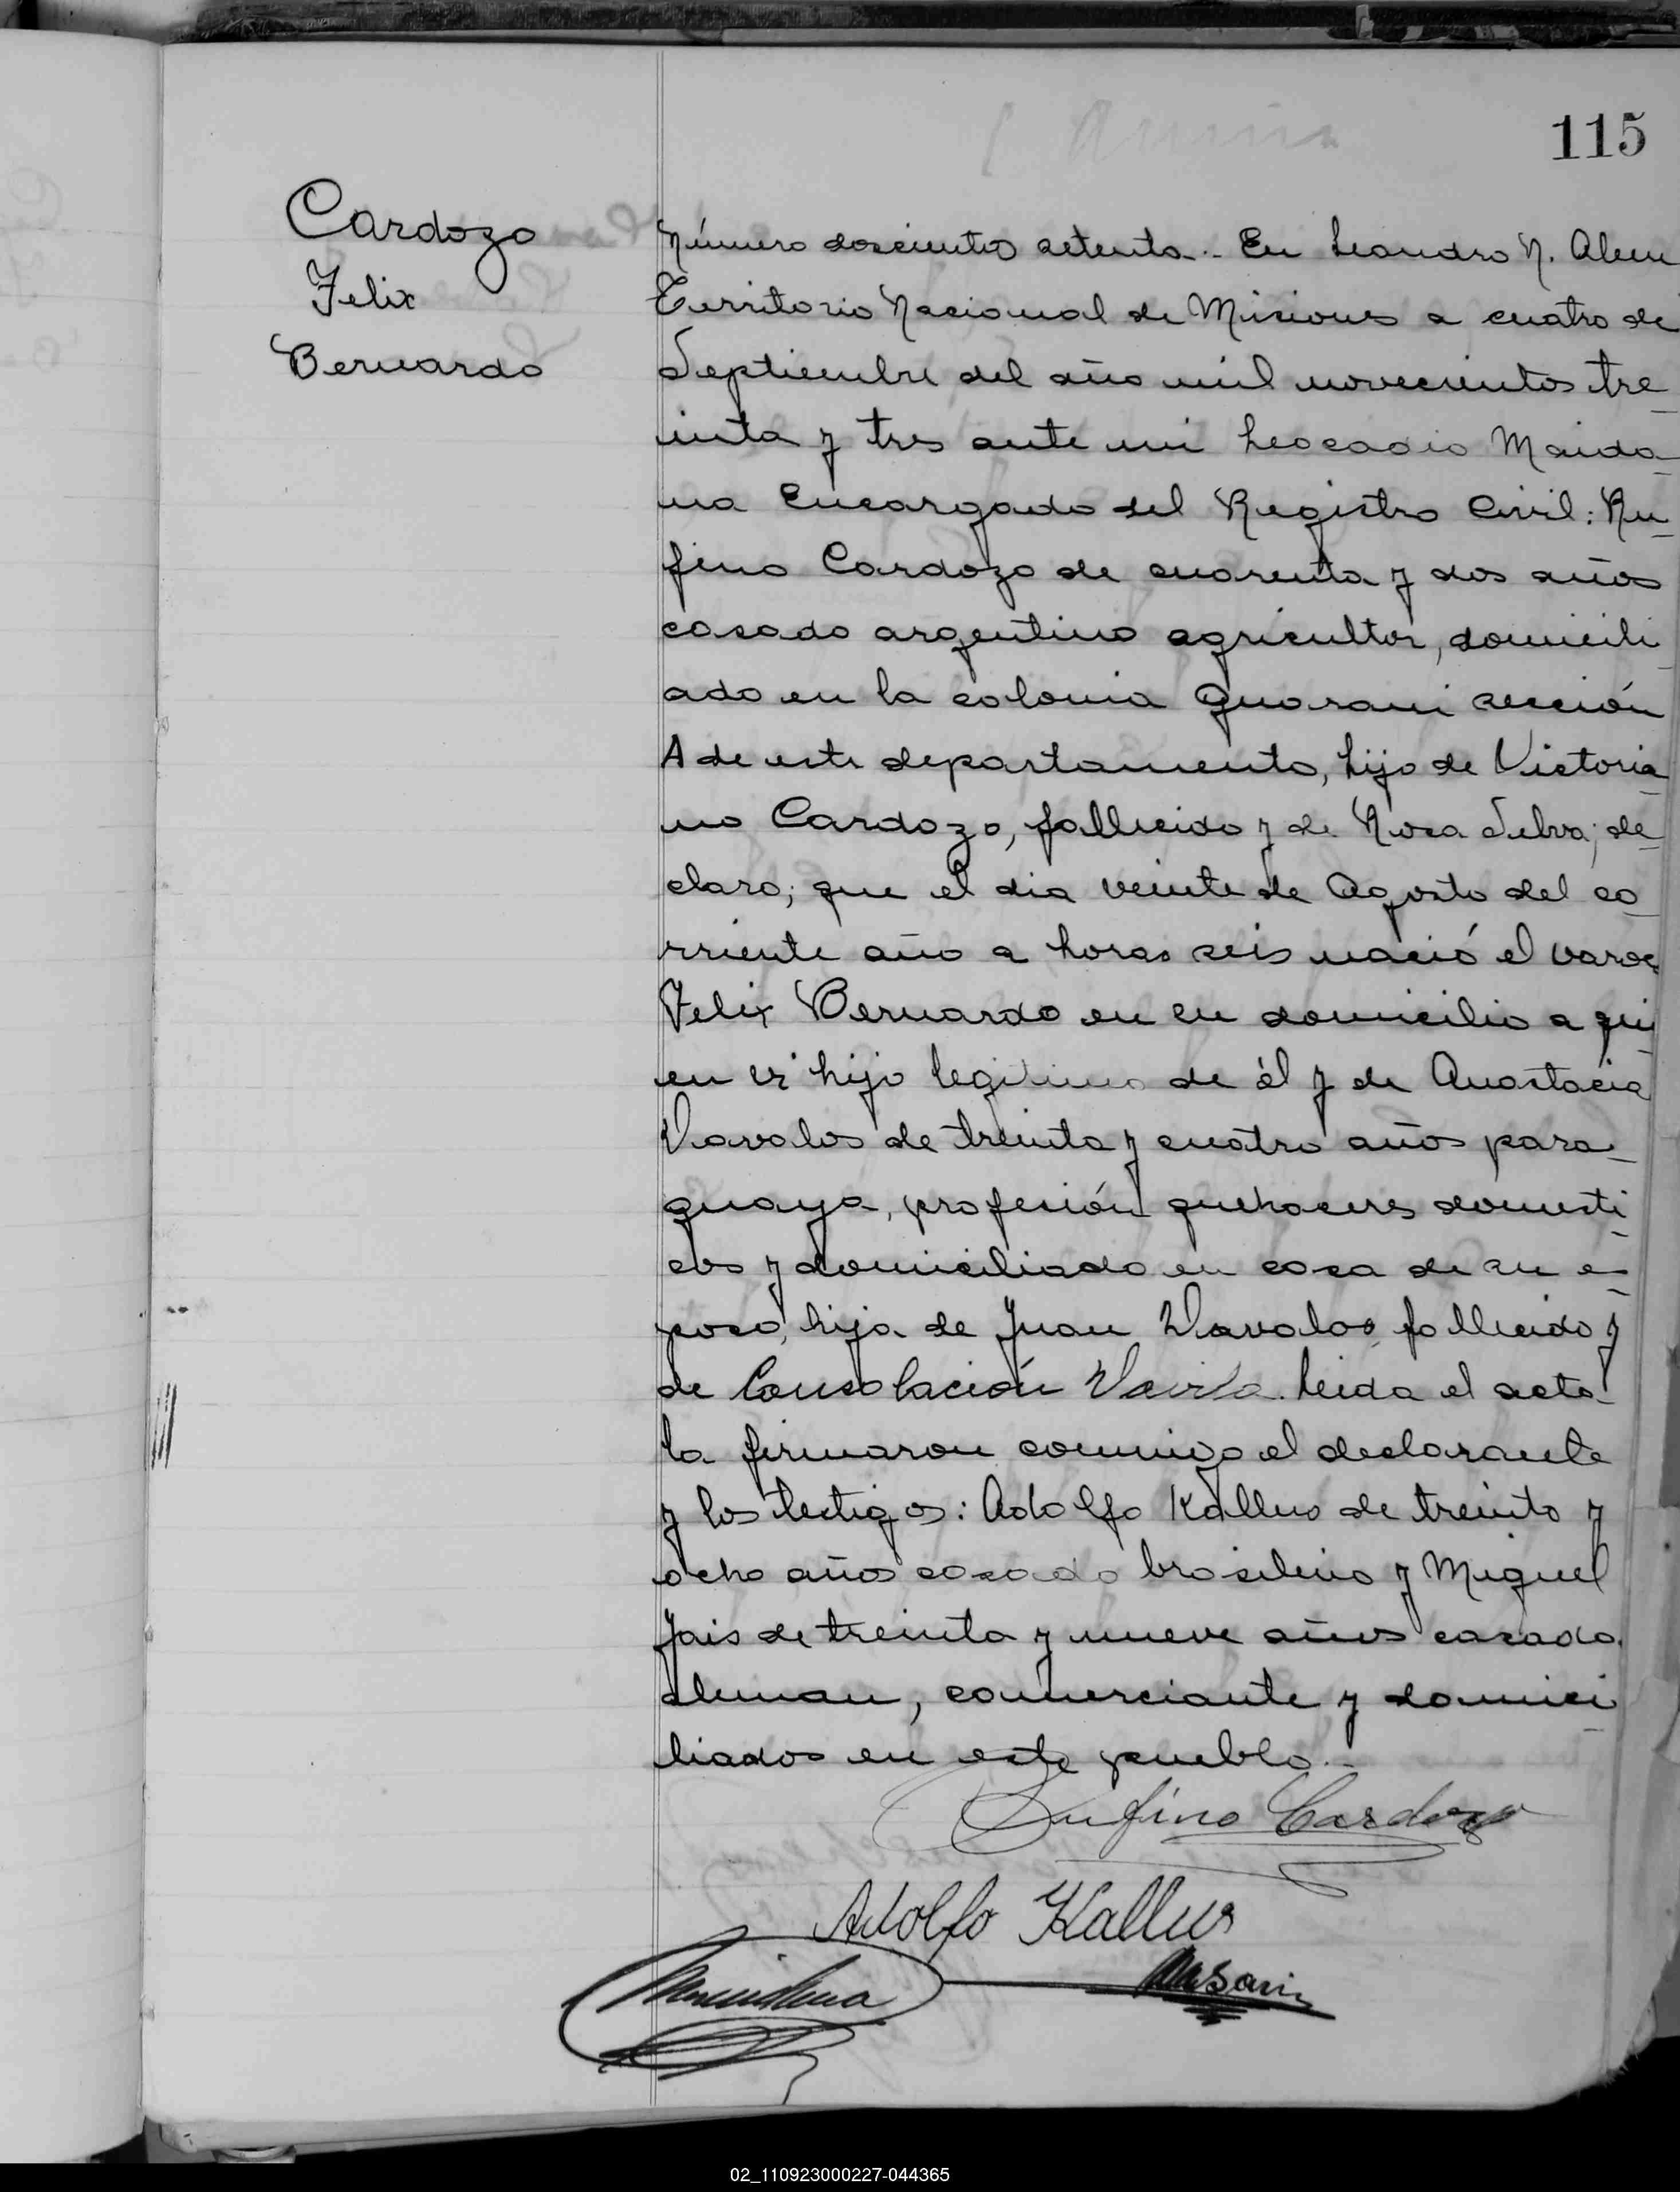 115
Cardozo
Felix
Bernardo
Número doscientos setenta.- En Leandro N. Alem
Territorio Nacional de Misiones a cuatro de
Septiembre del año mil novecientos tre-
inta y tres ante mi Leocadio Maida-
na Encargado del Registro Civil: Ru-
fino Cardozo de cuarenta y dos años
casado argentino agricultor, domicili-
ado en la colonia Guarani sección
A de este departamento, hijo de Victoria-
no Cardozo, fallecido y de Rosa Selva; de-
claro; que el dia veinte de Agosto del co-
rriente año a horas seis nació el varon
Felix Bernardo en su domicilio a qui-
en es hijo legitimo de él y de Anastacia
Davalos de treinta y cuatro años para-
guaya, profesión quehaceres domesti-
cos y domiciliada en casa de su es-
poso, hija de Juan Davalos, fallecido y
de Consolación leida el acta-
la firmaron conmigo el declarante
y los testigos: Adolfo Kallus de treinta y
ocho años casado brasilero y Miguel
Jais de treinta y nueve años casado
aleman, comerciante y domici-
liados en este pueblo.-
Rufino Cardozo
Adolfo Kallus
02_110923000227-044365